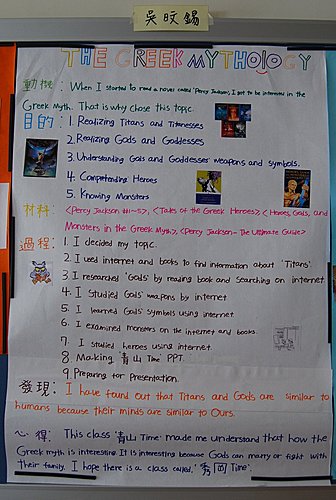 吳旼錫
THE GREEK MYTHOLOGY
動機: When I started to read a novel called 'Percy Jackson', I got to be interested in the
Greek Myth. That is why chose this topic.
目的: 1. Realizing Titans and Titanesses
2. Realizing Gods and Goddesses
3. Understanding Gods and Goddesses' weapons and symbols.
4. Comprehending Heroes
5. Knowing Monsters
材料: <Percy Jackson #1~5>, <Tales of the Greek Heroes>, <Heroes, Gods, and
Monsters in the Greek Myth>, <Percy Jackson- The Ultimate Guide>
過程: 1. I decided my topic.
2. I used internet and books to find information about 'Titans'.
3. I researched 'Gods' by reading book and searching on internet.
4. I studied Gods' weapons by internet.
5. I learned Gods' symbols using internet.
6. I examined monsters on the internet and books.
7. I studied heroes using internet.
8. Making '青山 Time' PPT.
9. Preparing for Presentation.
發現: I have found out that Titans and Gods are similar to
humans because their minds are similar to Ours.
心得: This class '青山 Time' made me understand that how the
Greek myth is interesting. It is interesting because Gods can marry or fight
with their family. I hope there is a class called, '秀回 Time'.